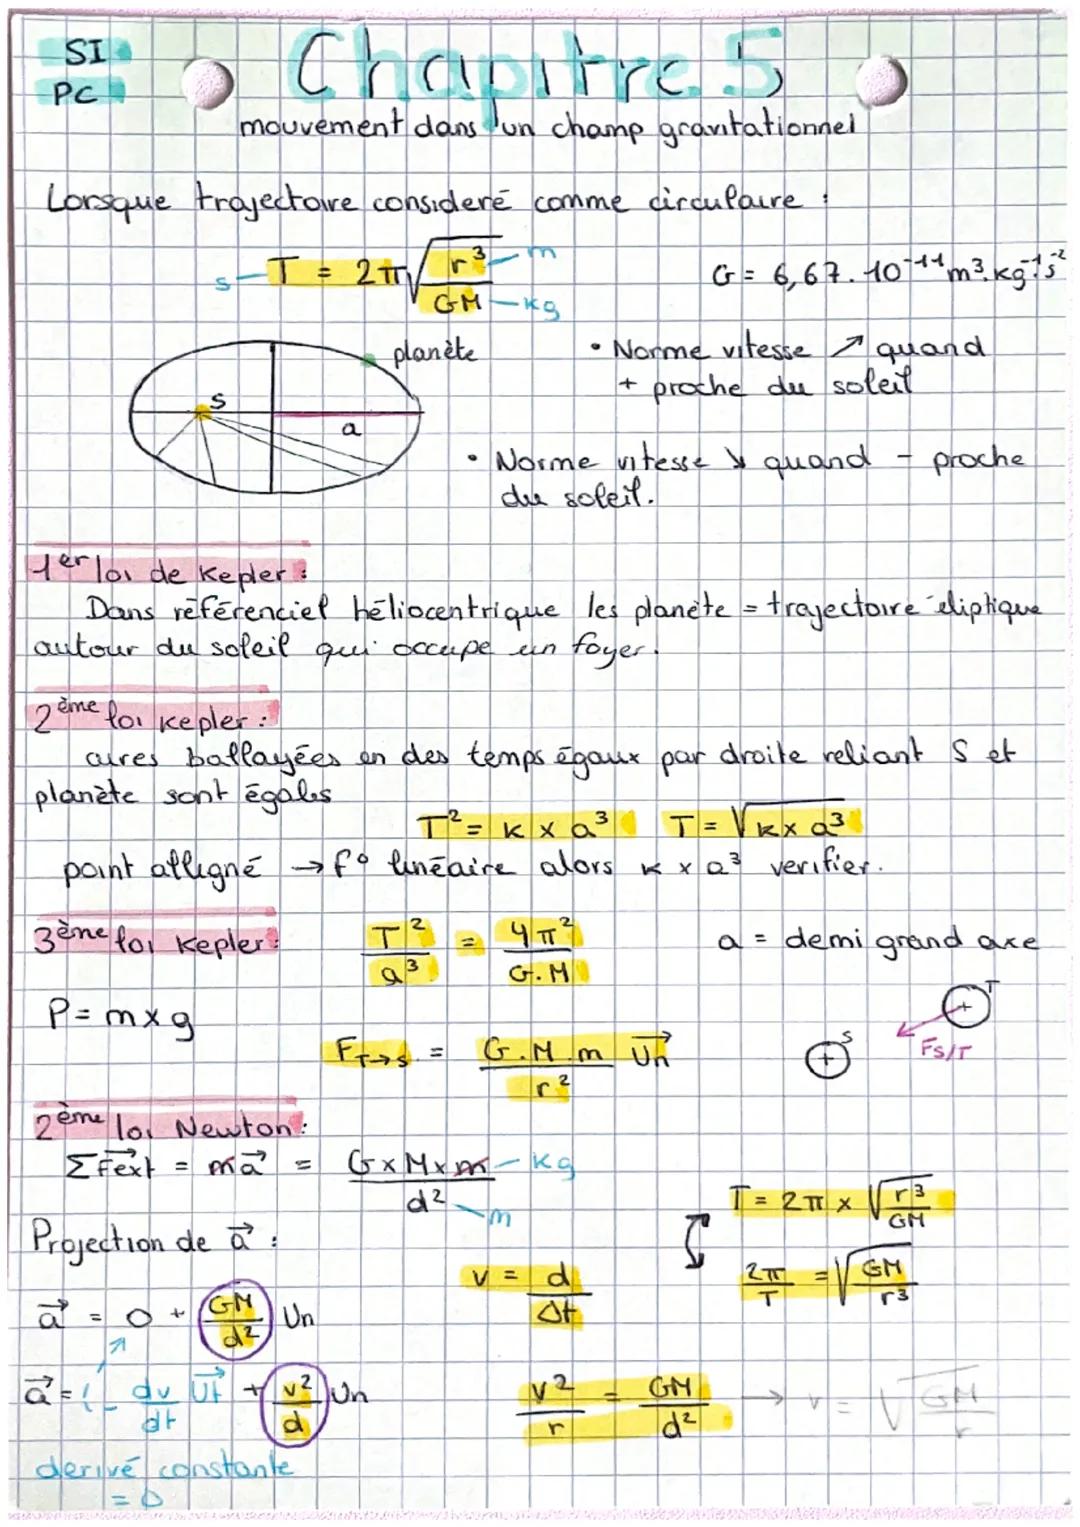 SI
PC
Chapitre 5
mouvement dans un champ gravitationnel
Lorsque trajectoire consideré comme circulaire :
s T = 2π√(r³/GM) m kg
G = 6,67.10⁻¹¹ m³.kg⁻¹s⁻²
planète
S
a
• Norme vitesse ↗ quand
+ proche du soleil
• Norme vitesse ↘ quand - proche
du soleil.
1er loi de Kepler :
Dans référenciel héliocentrique les planète = trajectoire eliptique
autour du soleil qui occupe un foyer.
2ème loi Kepler :
aires ballayées en des temps égaux par droite reliant S et
planète sont égales
T² = k × a³ T = √(k × a³)
point alligné → f° linéaire alors k × a³ verifier.
3ème loi Kepler : T²/a³ = 4π²/G.M a = demi grand axe
P = m×g
F T→S = G.M.m/r² Un
S
T
FS/T
2ème loi Newton :
ΣFext = ma = G×M×m/d² kg m
T = 2π × √(r³/GM)
Projection de a :
v = d/Δt
2π/T = √(GM/r³)
a = 0 + (GM/d²) Un
a = dv/dt Ut + (v²/d) Un
v²/r = GM/d² → v = √(GM/r)
derivé constante
= 0